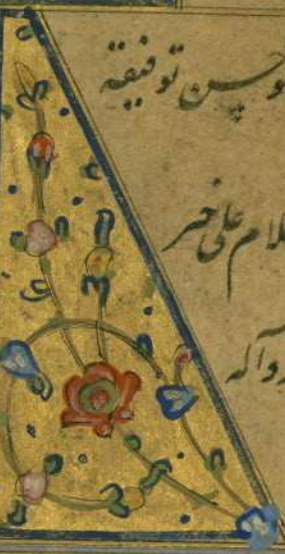 وحسن توفیقه
لام علی خیر
وآله